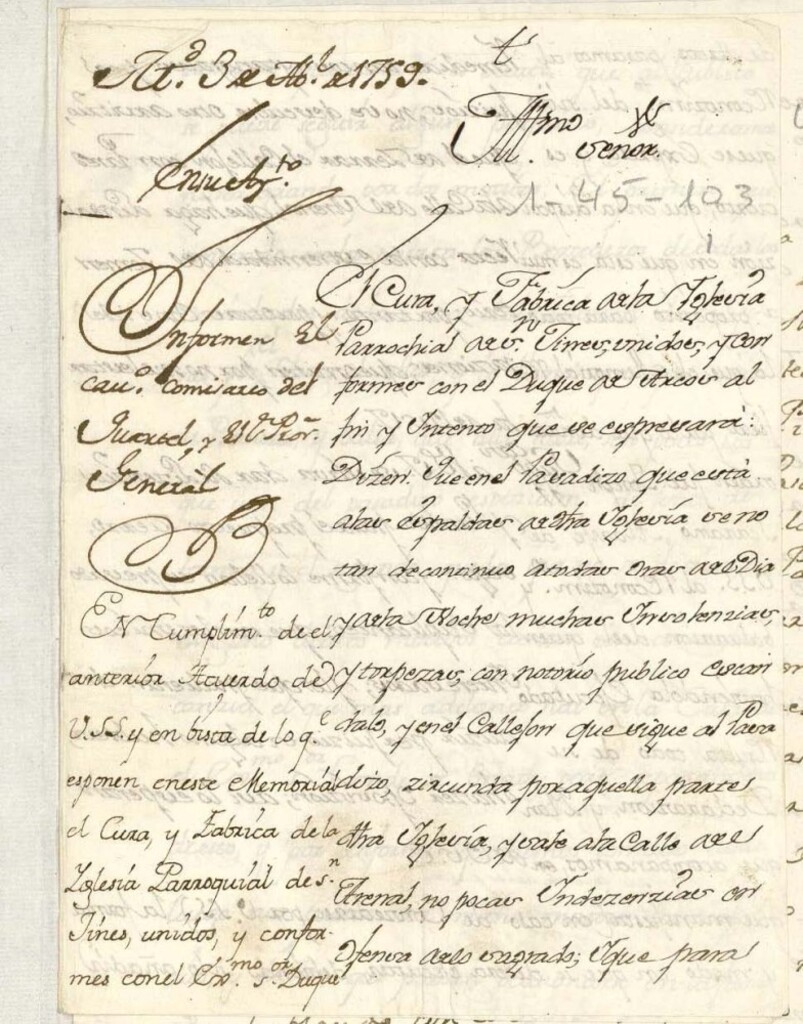 t
Md. 3 de Ab.l de 1759.
Illmo
Señor
En su Ay.to
1-45-103
1
Informen El
cav.o Comisario del
Quartel, y El Pror.
General
El Cura, y Fabrica de la Yglesia
Parrochial de S.n Jines, unidos, y con
formes con el Duque de Arcos al
fin y Yntento que se espressará:
Dizen: Que en el Pasadizo que está
a las espaldas de dha Yglesia se no
tan de continuo a todas oras del Dia
y de la Noche muchas Ynsolenzias,
y torpezas, con notorio publico escan
dalo, y en el Callejon que sigue al Pasa
dizo, zircunda por aquella parte
dha Yglesia, y sale a la Calle del
Arenal, no pocas Yndezenzias en
ofensa de lo sagrado; Y que para
En Cumplim.to de el
anterior Acuerdo de
V.SS. y en bista de lo q.e
esponen en este Memorial
el Cura, y Fabrica de la
Yglesia Parroquial de S.n
Jines, unidos, y confor-
mes con el Exc.mo S.or Duque